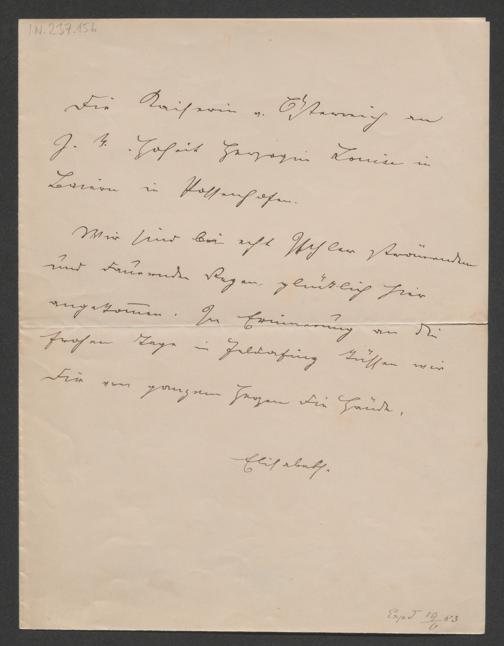 I.N. 237.156
Die Kaiserin v. Österreich an
J. K. Hoheit Herzogin Louise in
Baiern in Possenhofen.
Wir sind bei echt Ischler strömenden
und dauernden Regen glücklich hier
angekommen. In Erinnerung an die
frohen Tage in Feldafing küssen wir
Dir von ganzem Herzen die Hände.
Elisabeth.